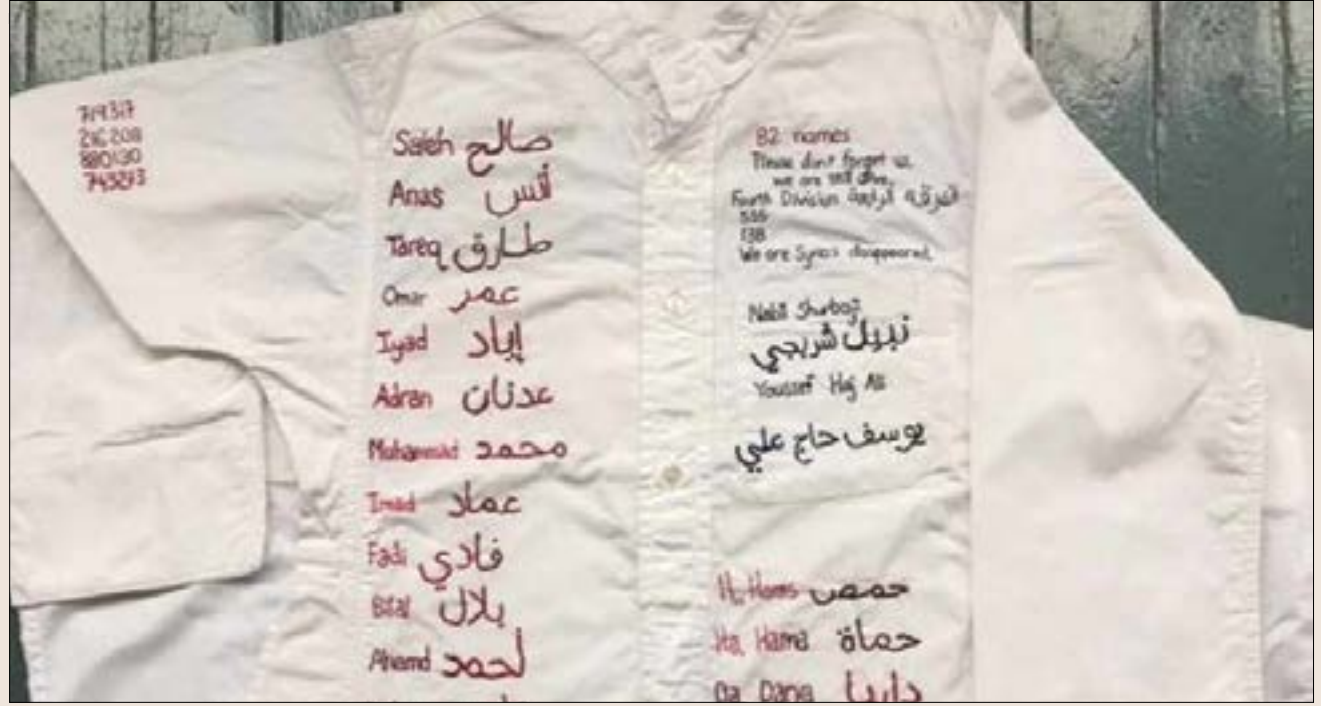 719317
216208
880130
743293
Saleh صالح
Anas أنس
Tareq طارق
Omar عمر
Iyad إياد
Adnan عدنان
Mohammad محمد
Imad عماد
Fadi فادي
Bilal بلال
Ahamd أحمد
82 names
Please don't forget us.
we are still alive.
Fourth Division الفرقة الرابعة
555
138
We are Syria's disappeared.
Nabil Shurbaji
نبيل شربجي
Youssef Haj Ali
يوسف حاج علي
H, Homs حمص
Ha, Hama حماة
Da, Daria داريا